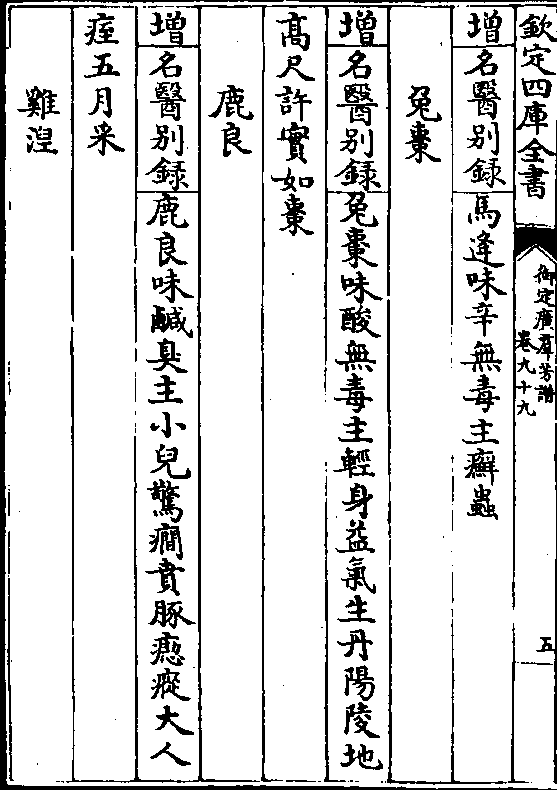 欽定四庫全書
御定廣羣芳譜
卷九十九
五
增名醫别録馬逢味辛無毒主癬蟲
兔棗
增名醫别録兔棗味酸無毒主輕身益氣生丹陽陵地
髙尺許實如棗
鹿良
增名醫别録鹿良味鹹臭主小兒驚癇賁豚瘛瘲大人
痓五月采
雞涅